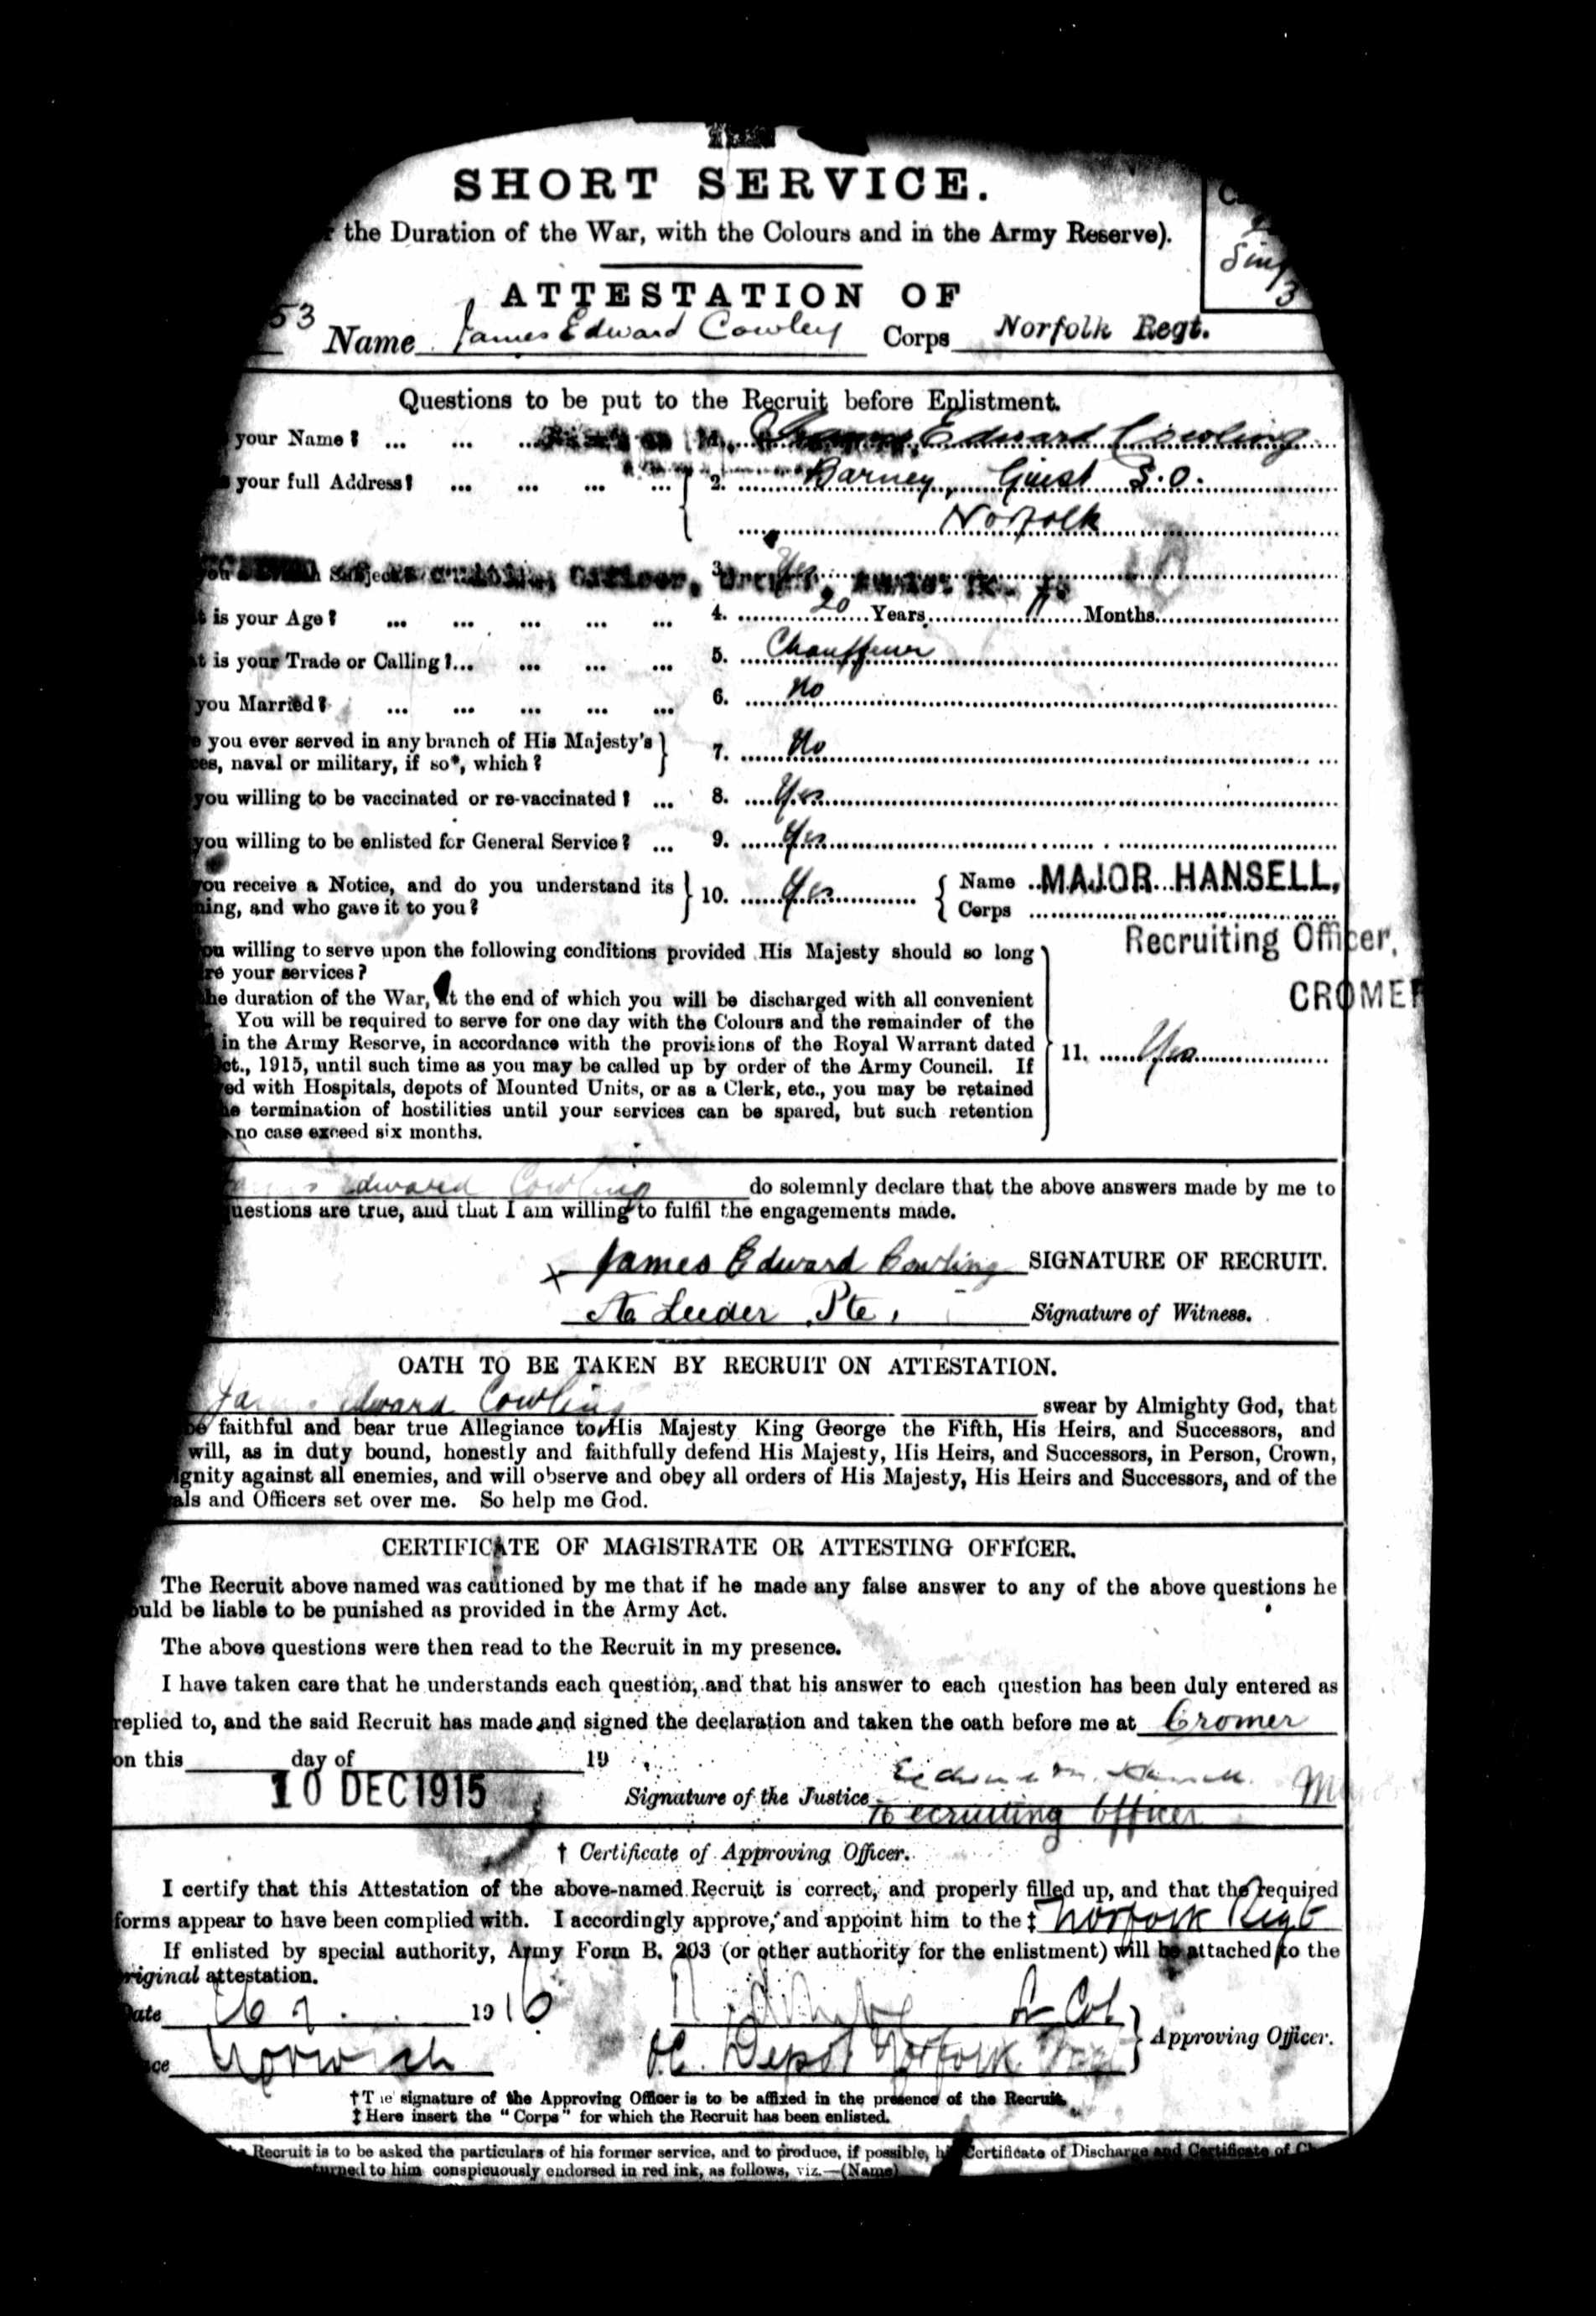 SHORT SERVICE.
the Duration of the War, with the Colours and in the Army Reserve).
ATTESTATION OF
53 Name James Edward Cowley Corps Norfolk Regt.
Questions to be put to the Recruit before Enlistment.
your Name? ... ... ... 1. James Edward Cowling
your full Address? ... ... ... ... 2. Barney, Guist S.O.
Norfolk
3. Yes
is your Age? ... ... ... ... ... 4. 20 Years 11 Months
is your Trade or Calling?... ... ... ... 5. Chauffeur
you Married? ... ... ... ... ... 6. No
you ever served in any branch of His Majesty's
naval or military, if so*, which? 7. No
you willing to be vaccinated or re-vaccinated? ... 8. Yes
you willing to be enlisted for General Service? ... 9. Yes
you receive a Notice, and do you understand its
and who gave it to you? 10. Yes Name MAJOR HANSELL,
Corps
Recruiting Officer,
CROMER
willing to serve upon the following conditions provided His Majesty should so long
your services?
the duration of the War, at the end of which you will be discharged with all convenient
You will be required to serve for one day with the Colours and the remainder of the
in the Army Reserve, in accordance with the provisions of the Royal Warrant dated
Oct., 1915, until such time as you may be called up by order of the Army Council. If
with Hospitals, depots of Mounted Units, or as a Clerk, etc., you may be retained
termination of hostilities until your services can be spared, but such retention
no case exceed six months.
11. Yes
James Edward Cowling do solemnly declare that the above answers made by me to
questions are true, and that I am willing to fulfil the engagements made.
x James Edward Cowling SIGNATURE OF RECRUIT.
Leeder Pte, Signature of Witness.
OATH TO BE TAKEN BY RECRUIT ON ATTESTATION.
James Edward Cowling swear by Almighty God, that
be faithful and bear true Allegiance to His Majesty King George the Fifth, His Heirs, and Successors, and
will, as in duty bound, honestly and faithfully defend His Majesty, His Heirs, and Successors, in Person, Crown,
against all enemies, and will observe and obey all orders of His Majesty, His Heirs and Successors, and of the
and Officers set over me. So help me God.
CERTIFICATE OF MAGISTRATE OR ATTESTING OFFICER.
The Recruit above named was cautioned by me that if he made any false answer to any of the above questions he
would be liable to be punished as provided in the Army Act.
The above questions were then read to the Recruit in my presence.
I have taken care that he understands each question, and that his answer to each question has been duly entered as
replied to, and the said Recruit has made and signed the declaration and taken the oath before me at Cromer
on this day of 19
10 DEC 1915
Signature of the Justice
Recruiting Officer
† Certificate of Approving Officer.
I certify that this Attestation of the above-named Recruit is correct, and properly filled up, and that the required
forms appear to have been complied with. I accordingly approve, and appoint him to the ‡ Norfolk Regt
If enlisted by special authority, Army Form B. 203 (or other authority for the enlistment) will be attached to the
original attestation.
Date 1916 Lt Col
Norwich Depot Norfolk Approving Officer.
† The signature of the Approving Officer is to be affixed in the presence of the Recruit.
‡ Here insert the "Corps" for which the Recruit has been enlisted.
Recruit is to be asked the particulars of his former service, and to produce, if possible, his Certificate of Discharge and Certificate of
returned to him conspicuously endorsed in red ink, as follows, viz.—(Name)